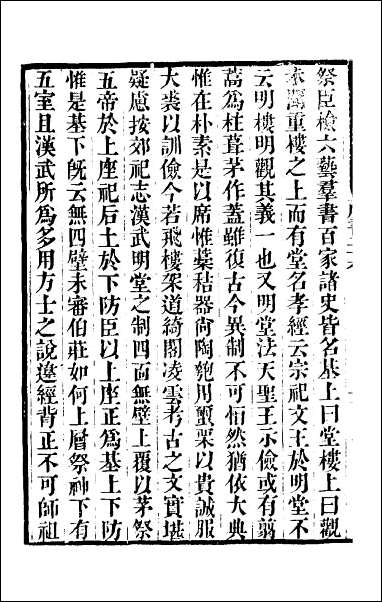 祭臣檢六藝羣書百家諸史皆名基上曰堂樓上曰觀
未聞重樓之上而有堂名孝經云宗祀文王於明堂不
云明樓明觀其義一也又明堂法天聖王示儉或有翦
蒿爲柱葺茅作蓋雖復古今異制不可恒然猶依大典
惟在朴素是以席惟藁秸器尚陶匏用蠒栗以貴誠服
大裘以訓儉今若飛樓架道綺閣凌雲考古之文實堪
疑慮按郊祀志漢武明堂之制四面無壁上覆以茅祭
五帝於上座祀后土於下防臣以上座正爲基上下防
惟是基下旣云無四壁未審伯莊如何上層祭神下有
五室且漢武所爲多用方士之說違經背正不可師祖